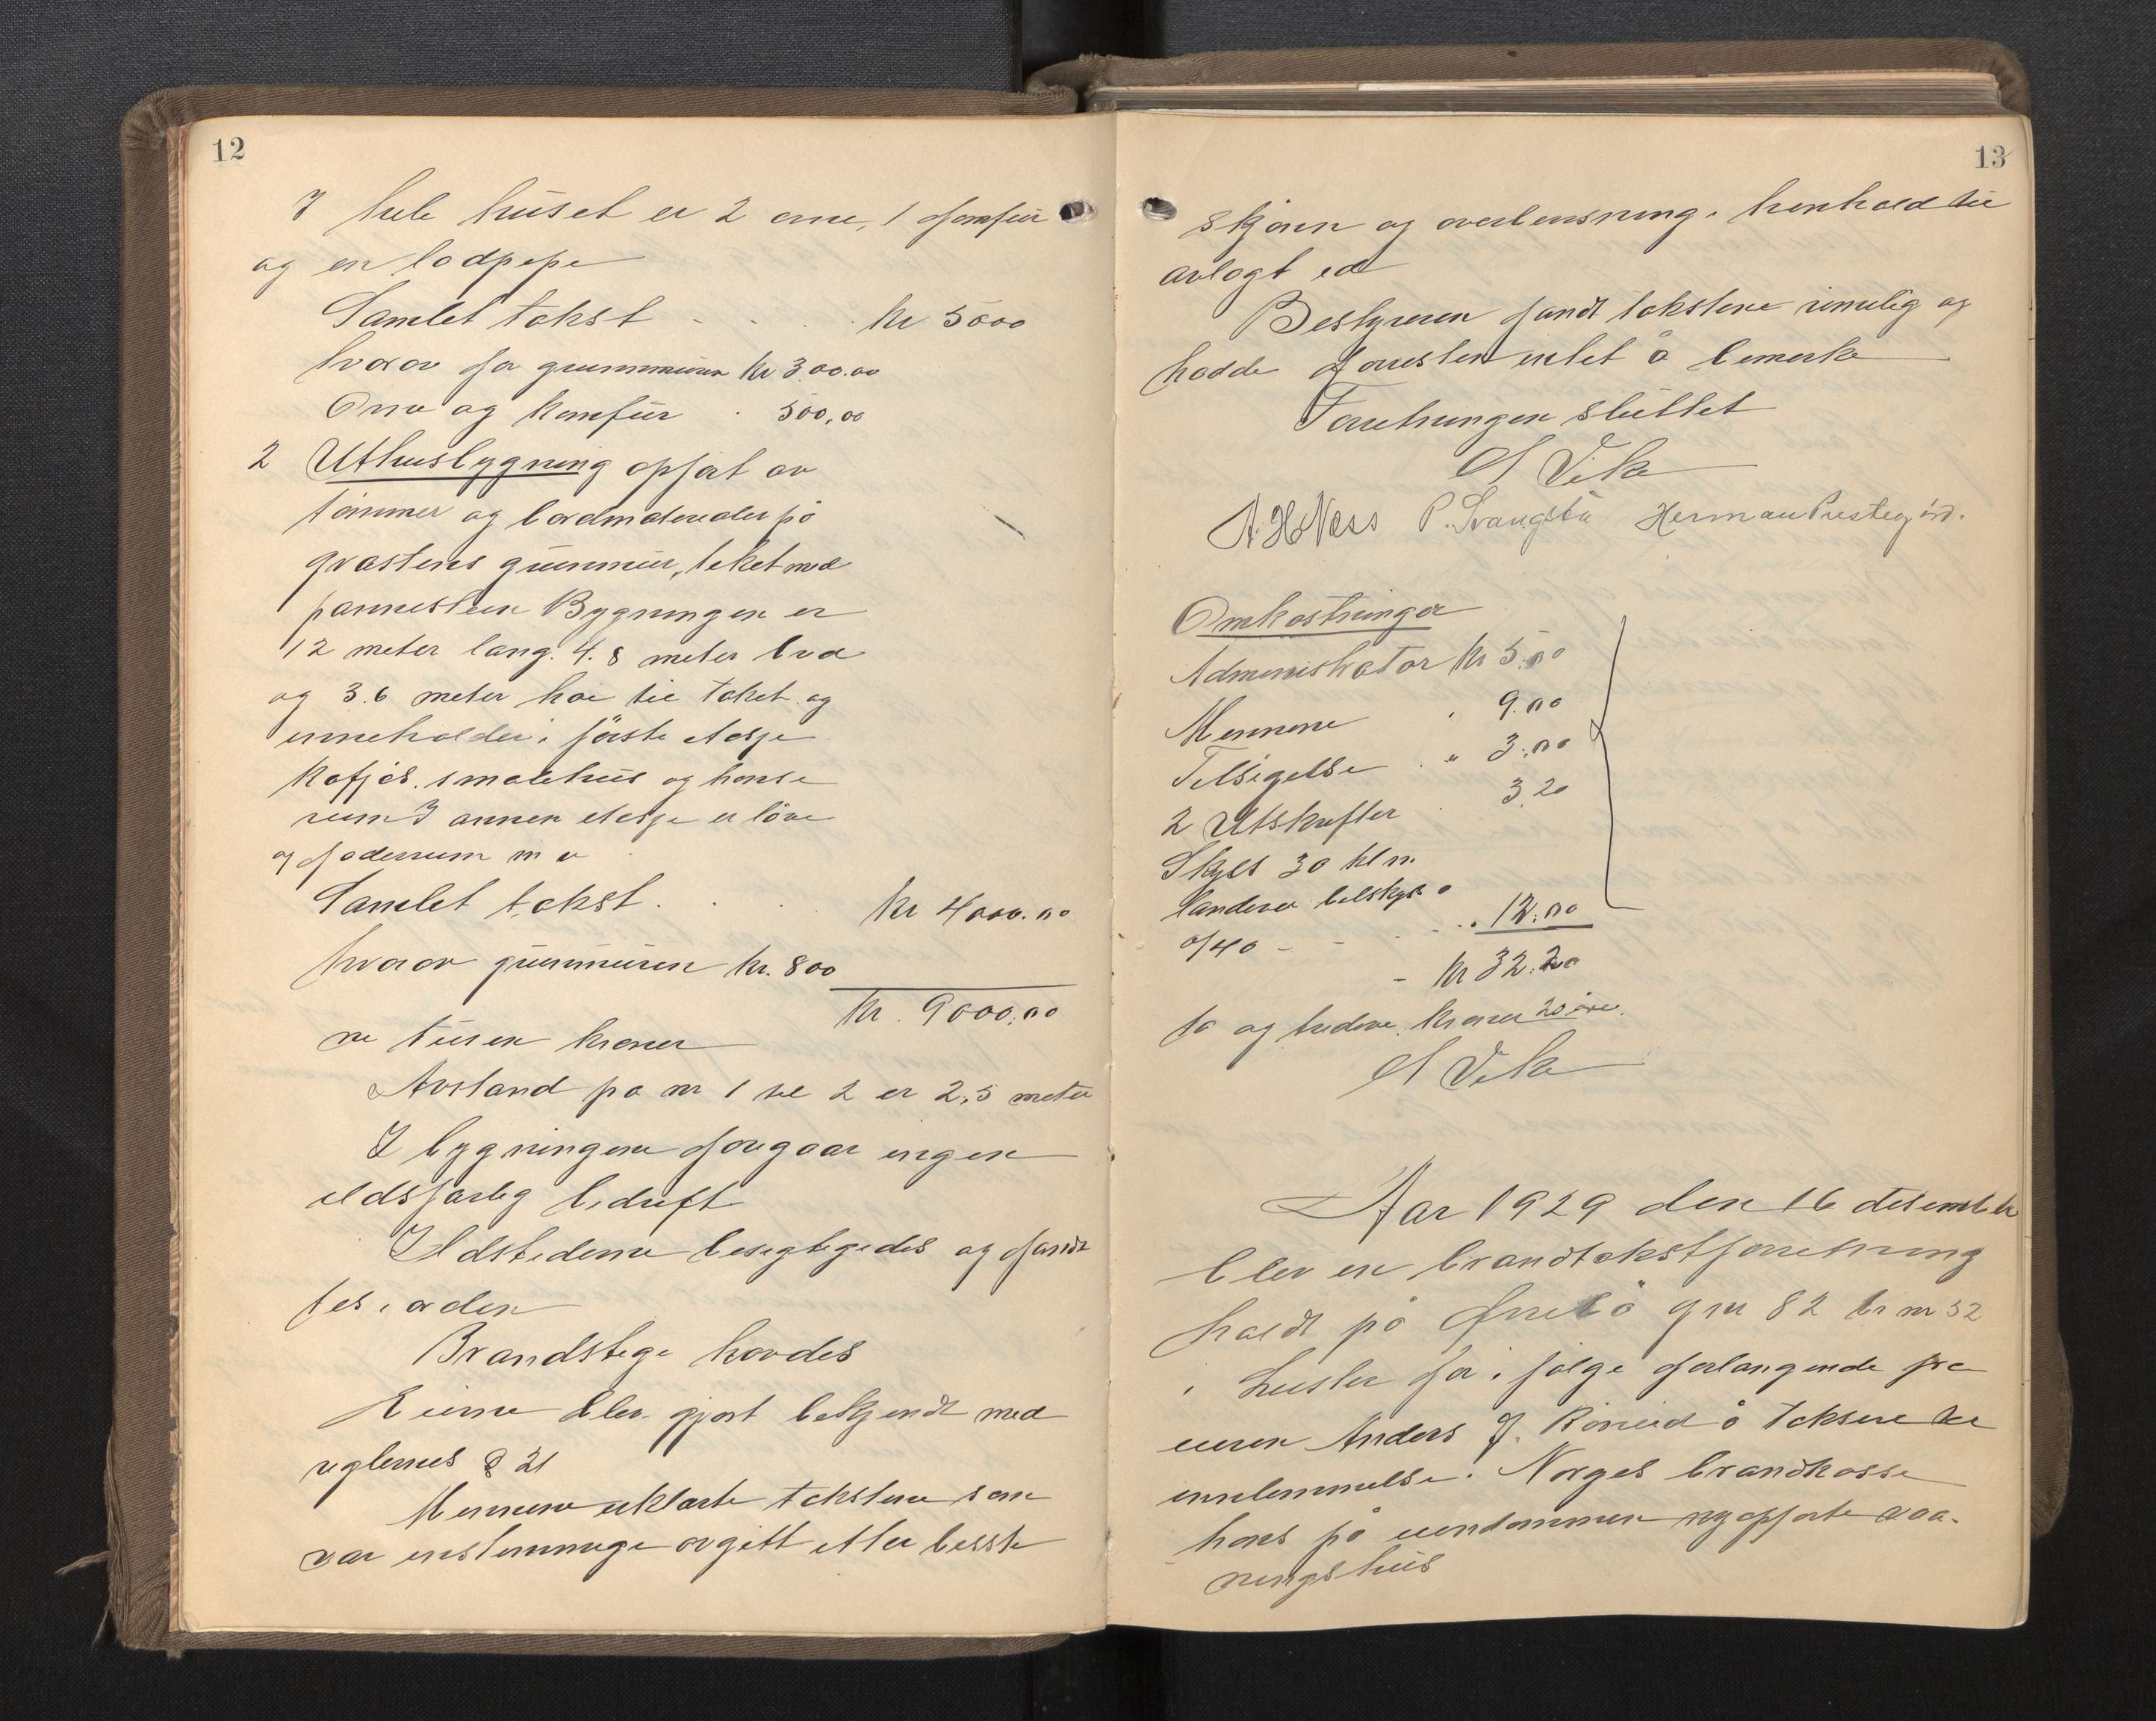 12
I hele huset er 2 ovne, 1 komfur
og en lodpipe
Samlet takst kr 5000
hvorav for grunnmuren kr 300.00
Ovne og komfur 500,00
2 Uthusbygning opført av
tömmer og bordmaterialer på
gråstens grunnmur, tekket med
pannesteen Bygningen er
12 meter lang. 4.8 meter bred
og 3.6 meter høi til taket og
inneholder i första etasje
kofjös. smalehus og hönse
rum I annen etasje er löve
og foderrum m v
Samlet takst. kr 4000.00
hvorav grunnmuren kr. 800
kr. 9000.00
ni tusen kroner
Avstand fra nr 1 til 2 er 2,5 meter
I bygningene foregaar ingen
ildsfarlig bedrift
Ildstederne besigtigedes og fandt
tes i orden
Brandstige havdes
Eierne blev gjort bekjendt med
reglernes § 21
Mennene erklærte takstene som
var enstemmige avgitt etter beste
13
skjönn og overbevisning i henhold til
avlagt ed
Bestyreren fandt takstene rimelig og
hadde forresten intet å bemerke
Forretningen sluttet
A Vike
A. H. Ness P. Svangstu Herman Prestegård.
Omkostninger
Administrator kr 5.00
Mennene " 9.00
Tilsigelse " 3.00
2 Utskrifter 3.20
Skyss 30 klm.
landevei bilskyss a
0/40 - - 12.00
- kr 32.20
to og tredive kroner 20 öre.
A Vike
Aar 1929 den 16 desember
blev en brandtakstforretning
holdt på gnr 82 br nr 32
i Luster for i fölge forlangende fra
eieren Anders J. å taksere til
innlemmelse i Norges brandkasse
hans på eiendommen nyopförte vaa-
ningshus